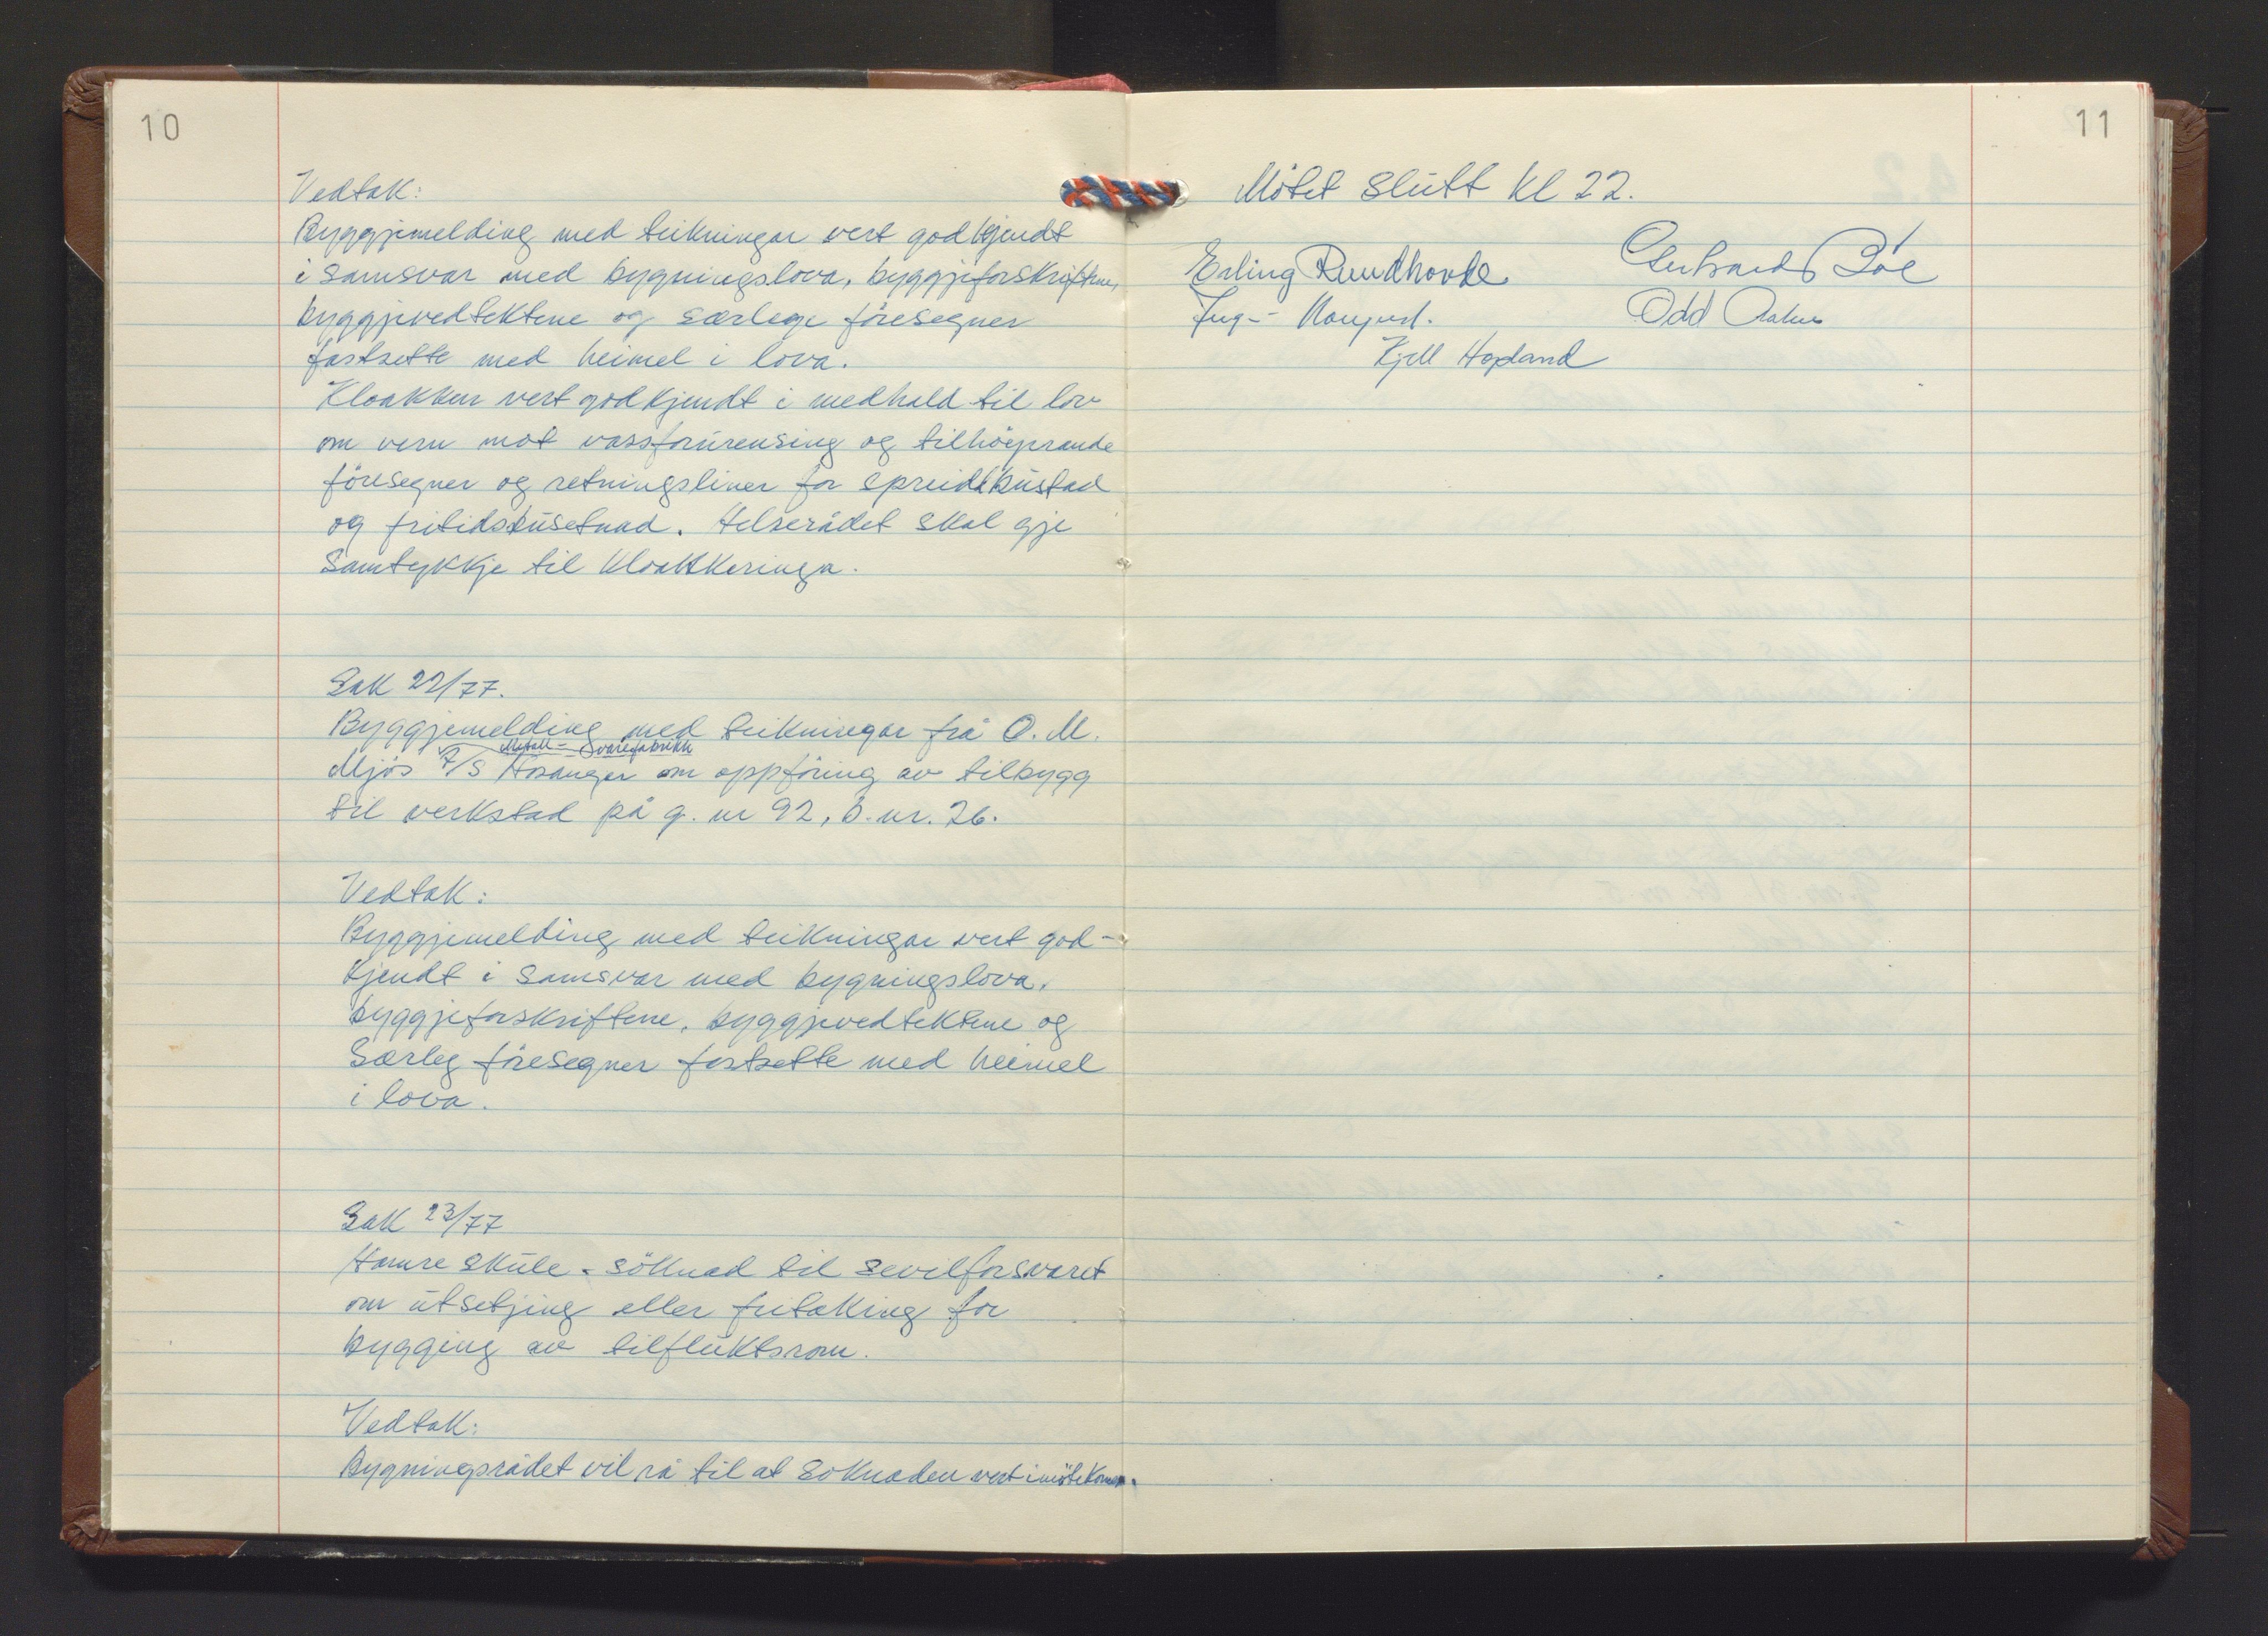 10
Vedtak:
Byggjemelding med teikningar vert godkjendt
i samsvar med bygningslova, byggjeforskriftene,
byggjevedtektene og særlege föresegner
fastsette med heimel i lova.
Kloakken vert godkjendt i medhald til lov
om vern mot vassforureusing og tilhöyrande
föresegner og retningsliner for spreidtbustad
og fritidsbusetnad. Helserådet skal gje
Samtykkje til kloakkeringa.
Sak 22/77.
Byggjemelding med teikningar frå O. M.
Metall- varefabrikk
Mjös A/S Hosanger om oppföring av tilbygg
til verkstad på g. nr 92, b. nr. 26.
Vedtak:
Byggjemelding med teikningar vert god-
kjendt i samsvar med bygningslova,
byggjeforskriftene, byggjevedtektene og
Særleg föresegner fastsette med heimel
i lova.
Sak 23/77
Hamre skule - söknad til sevilforsvaret
om utsetjing eller fritaking for
bygging av tilfluktsrom.
Vedtak:
Bygningsrådet vil rå til at soknaden vert imötekomen.
11
Mötet slutt kl 22.
Erling Rundhovde
Odd
Kjell Hopland